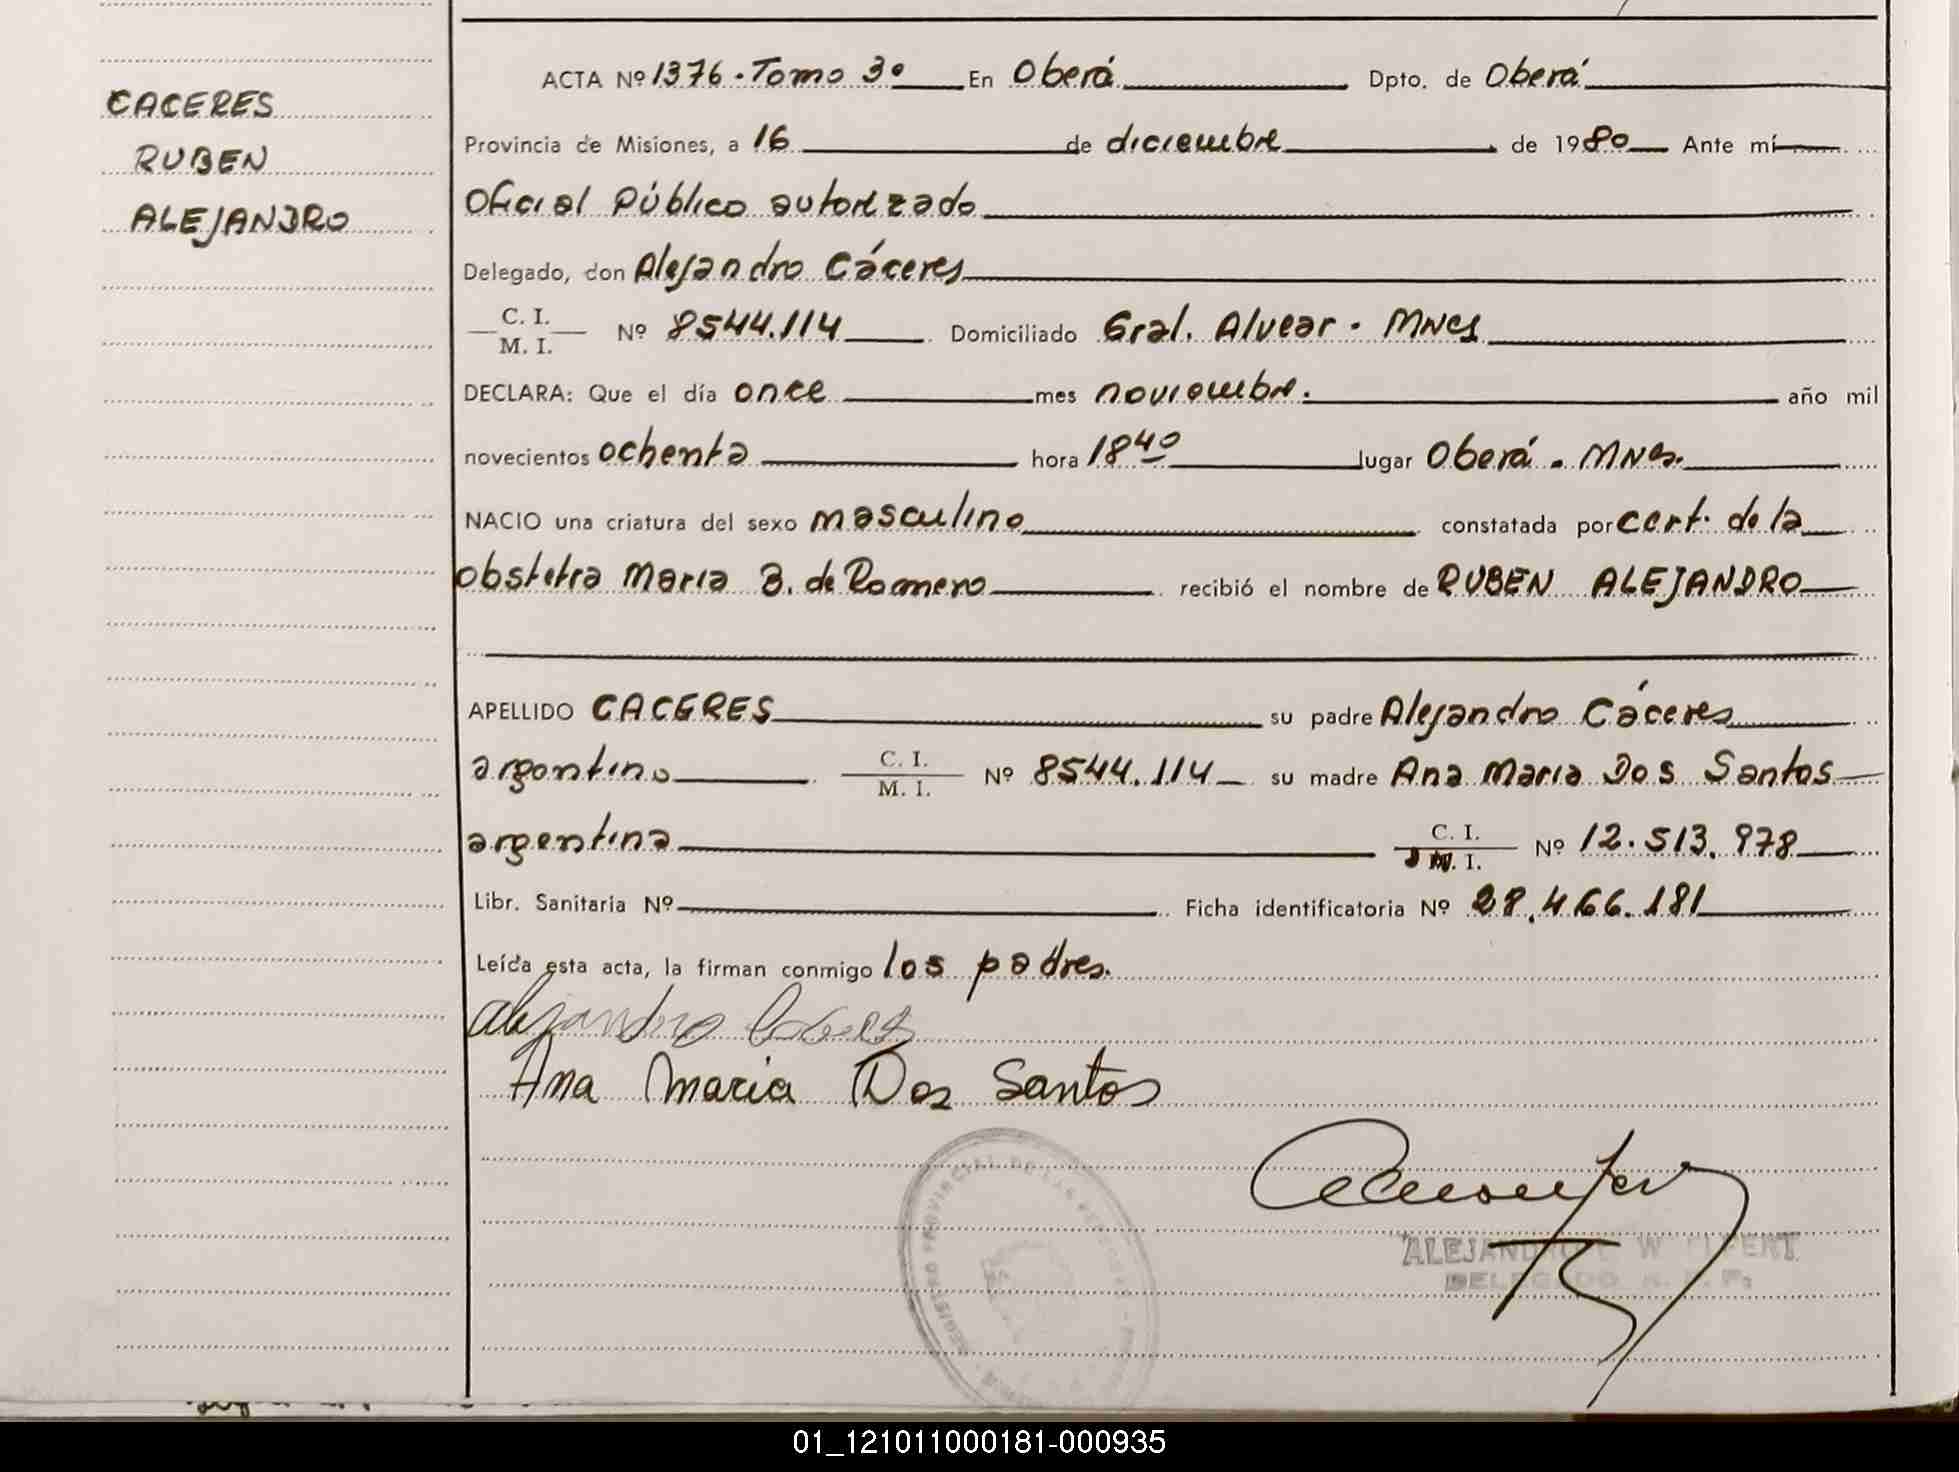 CACERES
RUBEN
ALEJANDRO
ACTA Nº 1376 . Tomo 3º En Oberá Dpto. de Oberá
Provincia de Misiones, a 16 de diciembre de 1980 Ante mí
Oficial Público autorizado
Delegado, don Alejandro Cáceres
C. I.
M. I. Nº 8544.114 Domiciliado Gral. Alvear . Mnes
DECLARA: Que el día once mes noviembre. año mil
novecientos ochenta hora 18 40 lugar Oberá . Mnes.
NACIO una criatura del sexo masculino constatada por cert. de la
obstetra Maria B. de Romero recibió el nombre de RUBEN ALEJANDRO
APELLIDO CACERES su padre Alejandro Cáceres
argentino C. I.
M. I. Nº 8544.114 su madre Ana Maria Dos Santos
argentina C. I.
M. I. Nº 12.513.978
Libr. Sanitaria Nº Ficha identificatoria Nº 28.466.181
Leída esta acta, la firman conmigo los padres.
Alejandro Caceres
Ana Maria Dos Santos
REGISTRO PROVINCIAL DE LAS PERSONAS
ALEJANDRO W.
DELEGADO R. P. P.
01_121011000181-000935